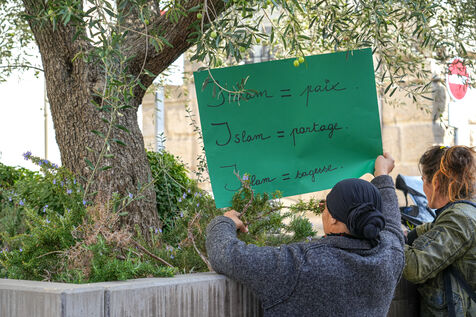 Islam = paix.
Islam = partage.
Islam = sagesse.